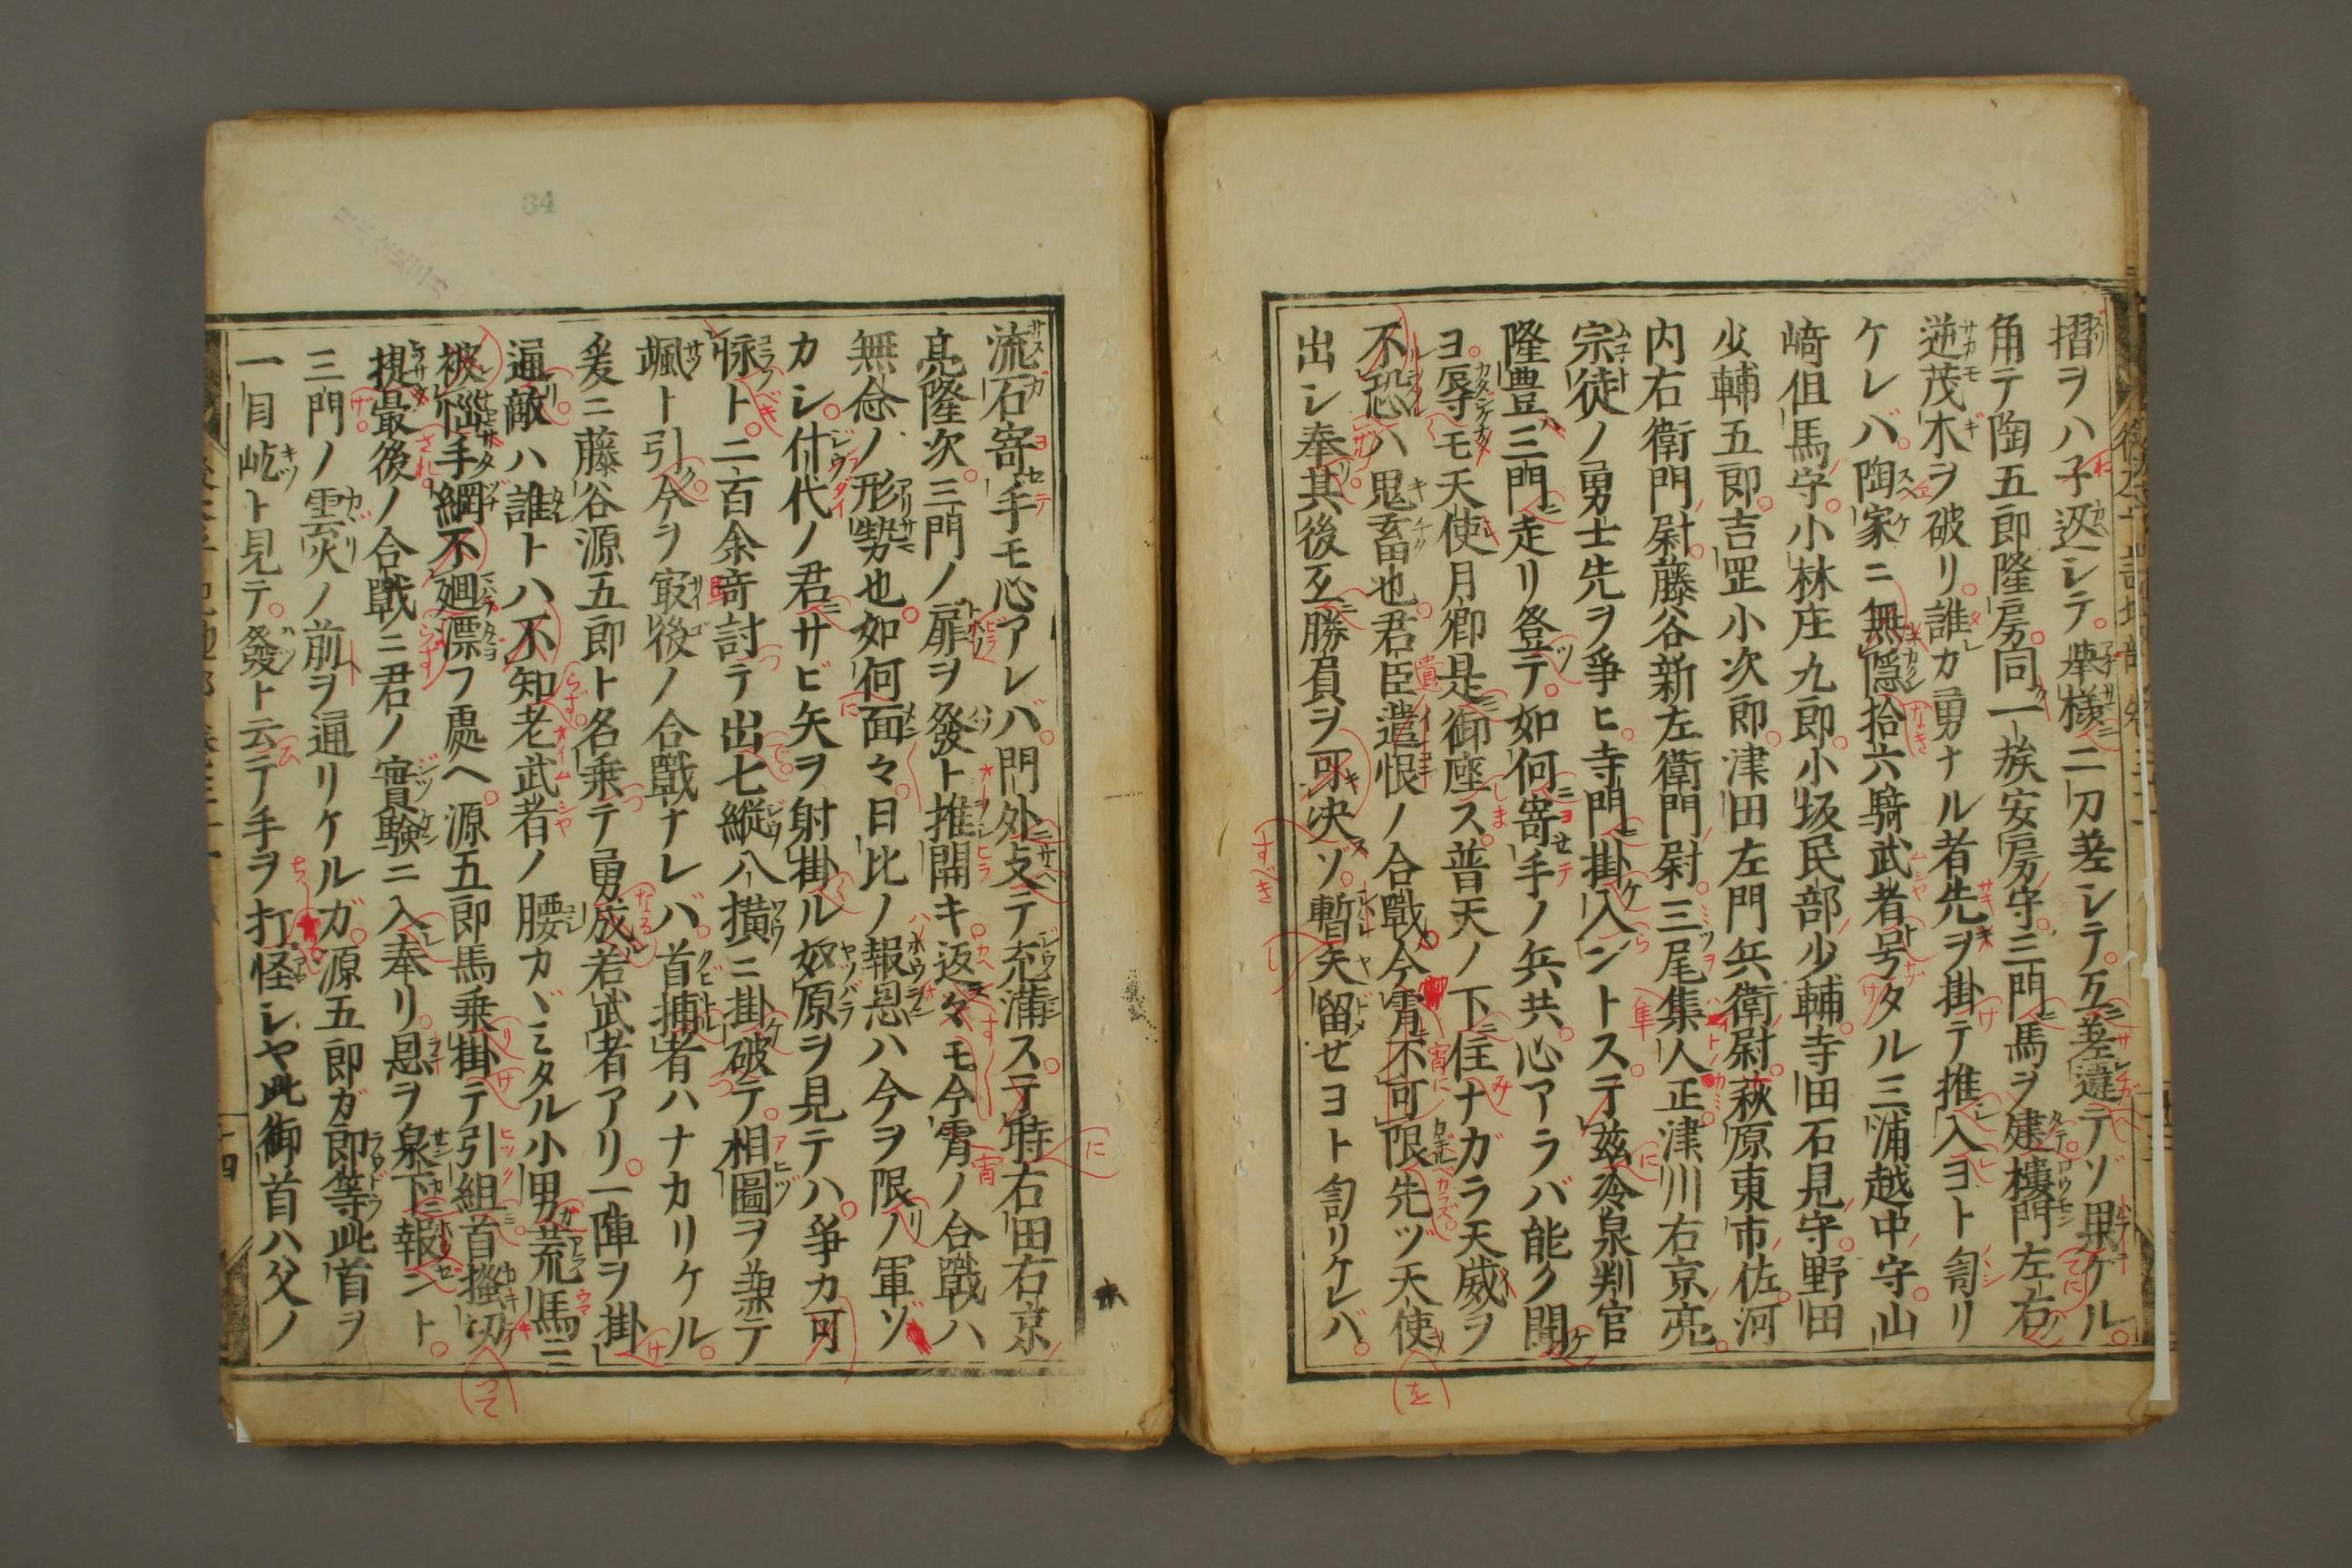 摺ヲハ子返シテ挙様ニ二刀差シテ互ニ差違テゾ果ケル
角テ陶五郎隆房同一族安房守三門ニ馬ヲ建樓門左右ノ
逆茂木ヲ破リ誰カ勇ナル者先ヲ掛テ推入ヨト訇リ
ケレバ陶家ニ無隠拾六騎武者ト号タル三浦越中守山
﨑伹馬守小林庄九郎小坂民部少輔寺田石見守野田
少輔五郎吉罡小次郎津田左門兵衛尉萩原東市佐河
内右衛門尉藤谷新左衛門尉三尾集人正津川右京亮
宗徒ノ勇士先ヲ爭ヒ寺門ニ掛入ントス于茲冷泉判官
隆豊三門ニ走リ登テ如何ニ寄手ノ兵共心アラバ能ク聞ケ
ヨ辱モ天使月卿是ニ御座ス普天ノ下ニ住ナガラ天威ヲ
不恐ハ鬼畜也君臣遺恨ノ合戰今宵不可限先ヅ天使
出シ奉其後互ニ勝負ヲ可决ゾ暫矢留セヨト訇リケレバ
流石寄手モ心アレバ門外ニ支テ充満ス于時右田右京
亮隆次三門ノ扉ヲ發ト推開キ返々モ今宵ノ合戰ハ
無念ノ形勢也如何ニ面々日比ノ報恩ハ今ヲ限ノ軍ゾ
カシ付代ノ君ニサビ矢ヲ射掛ル奴原ヲ見テハ爭カ可
怺ト二百余竒討テ出七縦八横ニ掛破テ相圖ヲ兼テ
颯ト引今ヲ㝡後ノ合戰ナレバ首捕者ハナカリケル
爰ニ藤谷源五郎ト名乗テ勇成若武者アリ一陣ヲ掛
逼敵ハ誰トハ不知老武者ノ腰カヾミタル小男荒馬ニ
被悩手綱不廻漂フ處ヘ源五郎馬乗掛テ引組首搔切
提最後ノ合戰ニ君ノ實驗ニ入奉リ恩ヲ泉下ニ報ント
三門ノ雲灾ノ前ヲ通リケルガ源五郎ガ郎等此首ヲ
一目屹ト見テ發ト云テ手ヲ打怪シヤ此御首ハ父ノ
十四
34